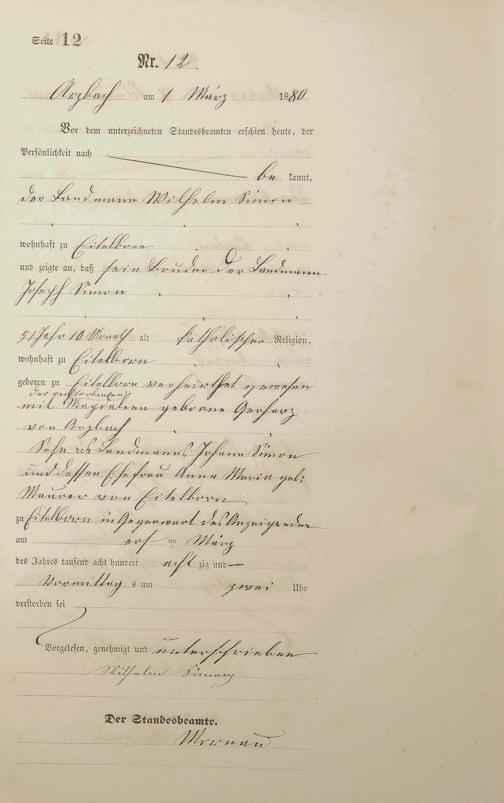 Seite 12
Nr. 12.
Arzbach am 1 März 1880
Vor dem unterzeichneten Standesbeamten erschien heute, der
Persönlichkeit nach
be kannt,
der Landmann Wilhelm Simon
wohnhaft zu Eitelborn
und zeigte an, daß sein Bruder der Landmann
Joseph Simon
51 Jahr 10 Monath alt katholischer Religion,
wohnhaft zu Eitelborn
geboren zu Eitelborn verheirathet gewesen
der verstorbenen
mit Magdalena geborne Gerharz
von Arzbach
Sohn des Landmanns Johann Simon
und dessen Ehefrau Anna Maria geb:
Maurer von Eitelborn
zu Eitelborn in Gegenwart des Anzeigenden
am ersten März
des Jahres tausend acht hundert acht zig und —
Vormittags um zwei Uhr
verstorben sei
Vorgelesen, genehmigt und unterschrieben
Wilhelm Simon
Der Standesbeamte.